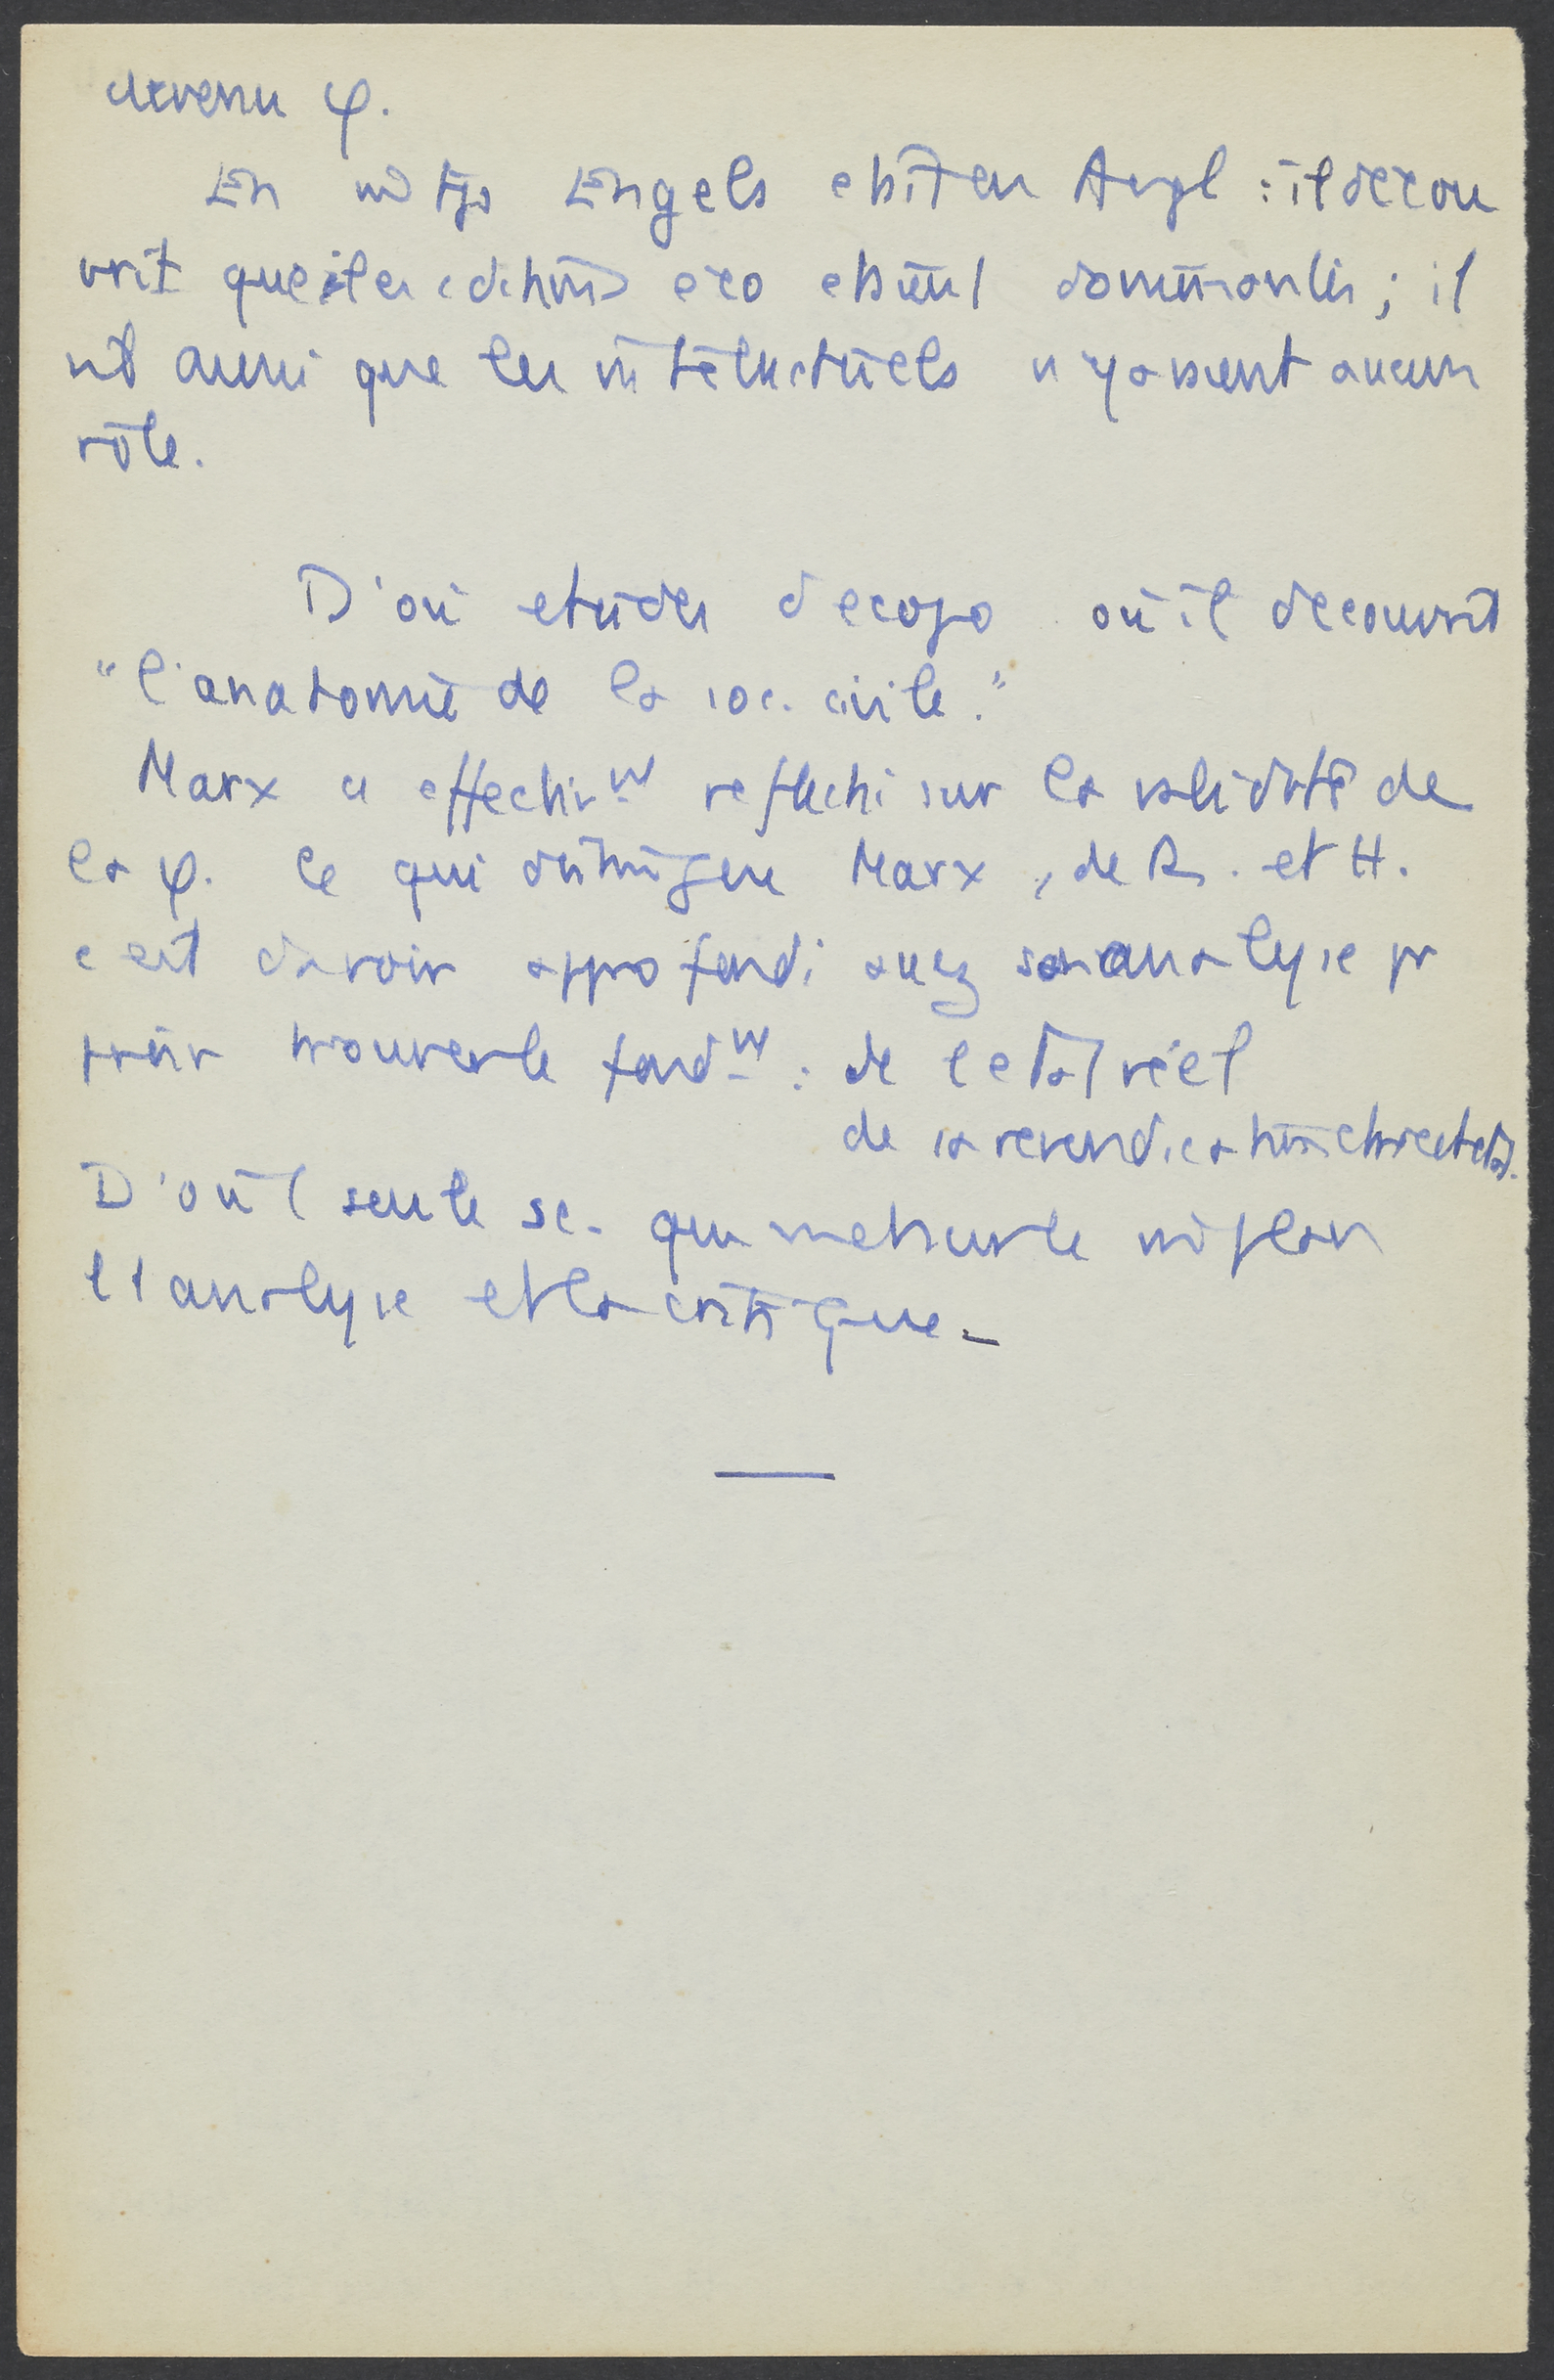 devenu φ.
En m̂ tps Engels était en Angl : il décou
vrit que les conditions éco étaient dominantes ; il
vit aussi que les intellectuels n'y avaient aucun
rôle.
D'où études d'ecopo où il découvrit
"l'anatomie de la soc. civile."
Marx a effectivt réfléchi sur la validité de
la φ. Ce qui distingue Marx, de R. et H.
c'est d'avoir approfondi assez son analyse pr
trouver le fondt : de l'etat réel
de la revendication
D'où l seule sc. qui met sur le m̂ plan
l'analyse et la critique_